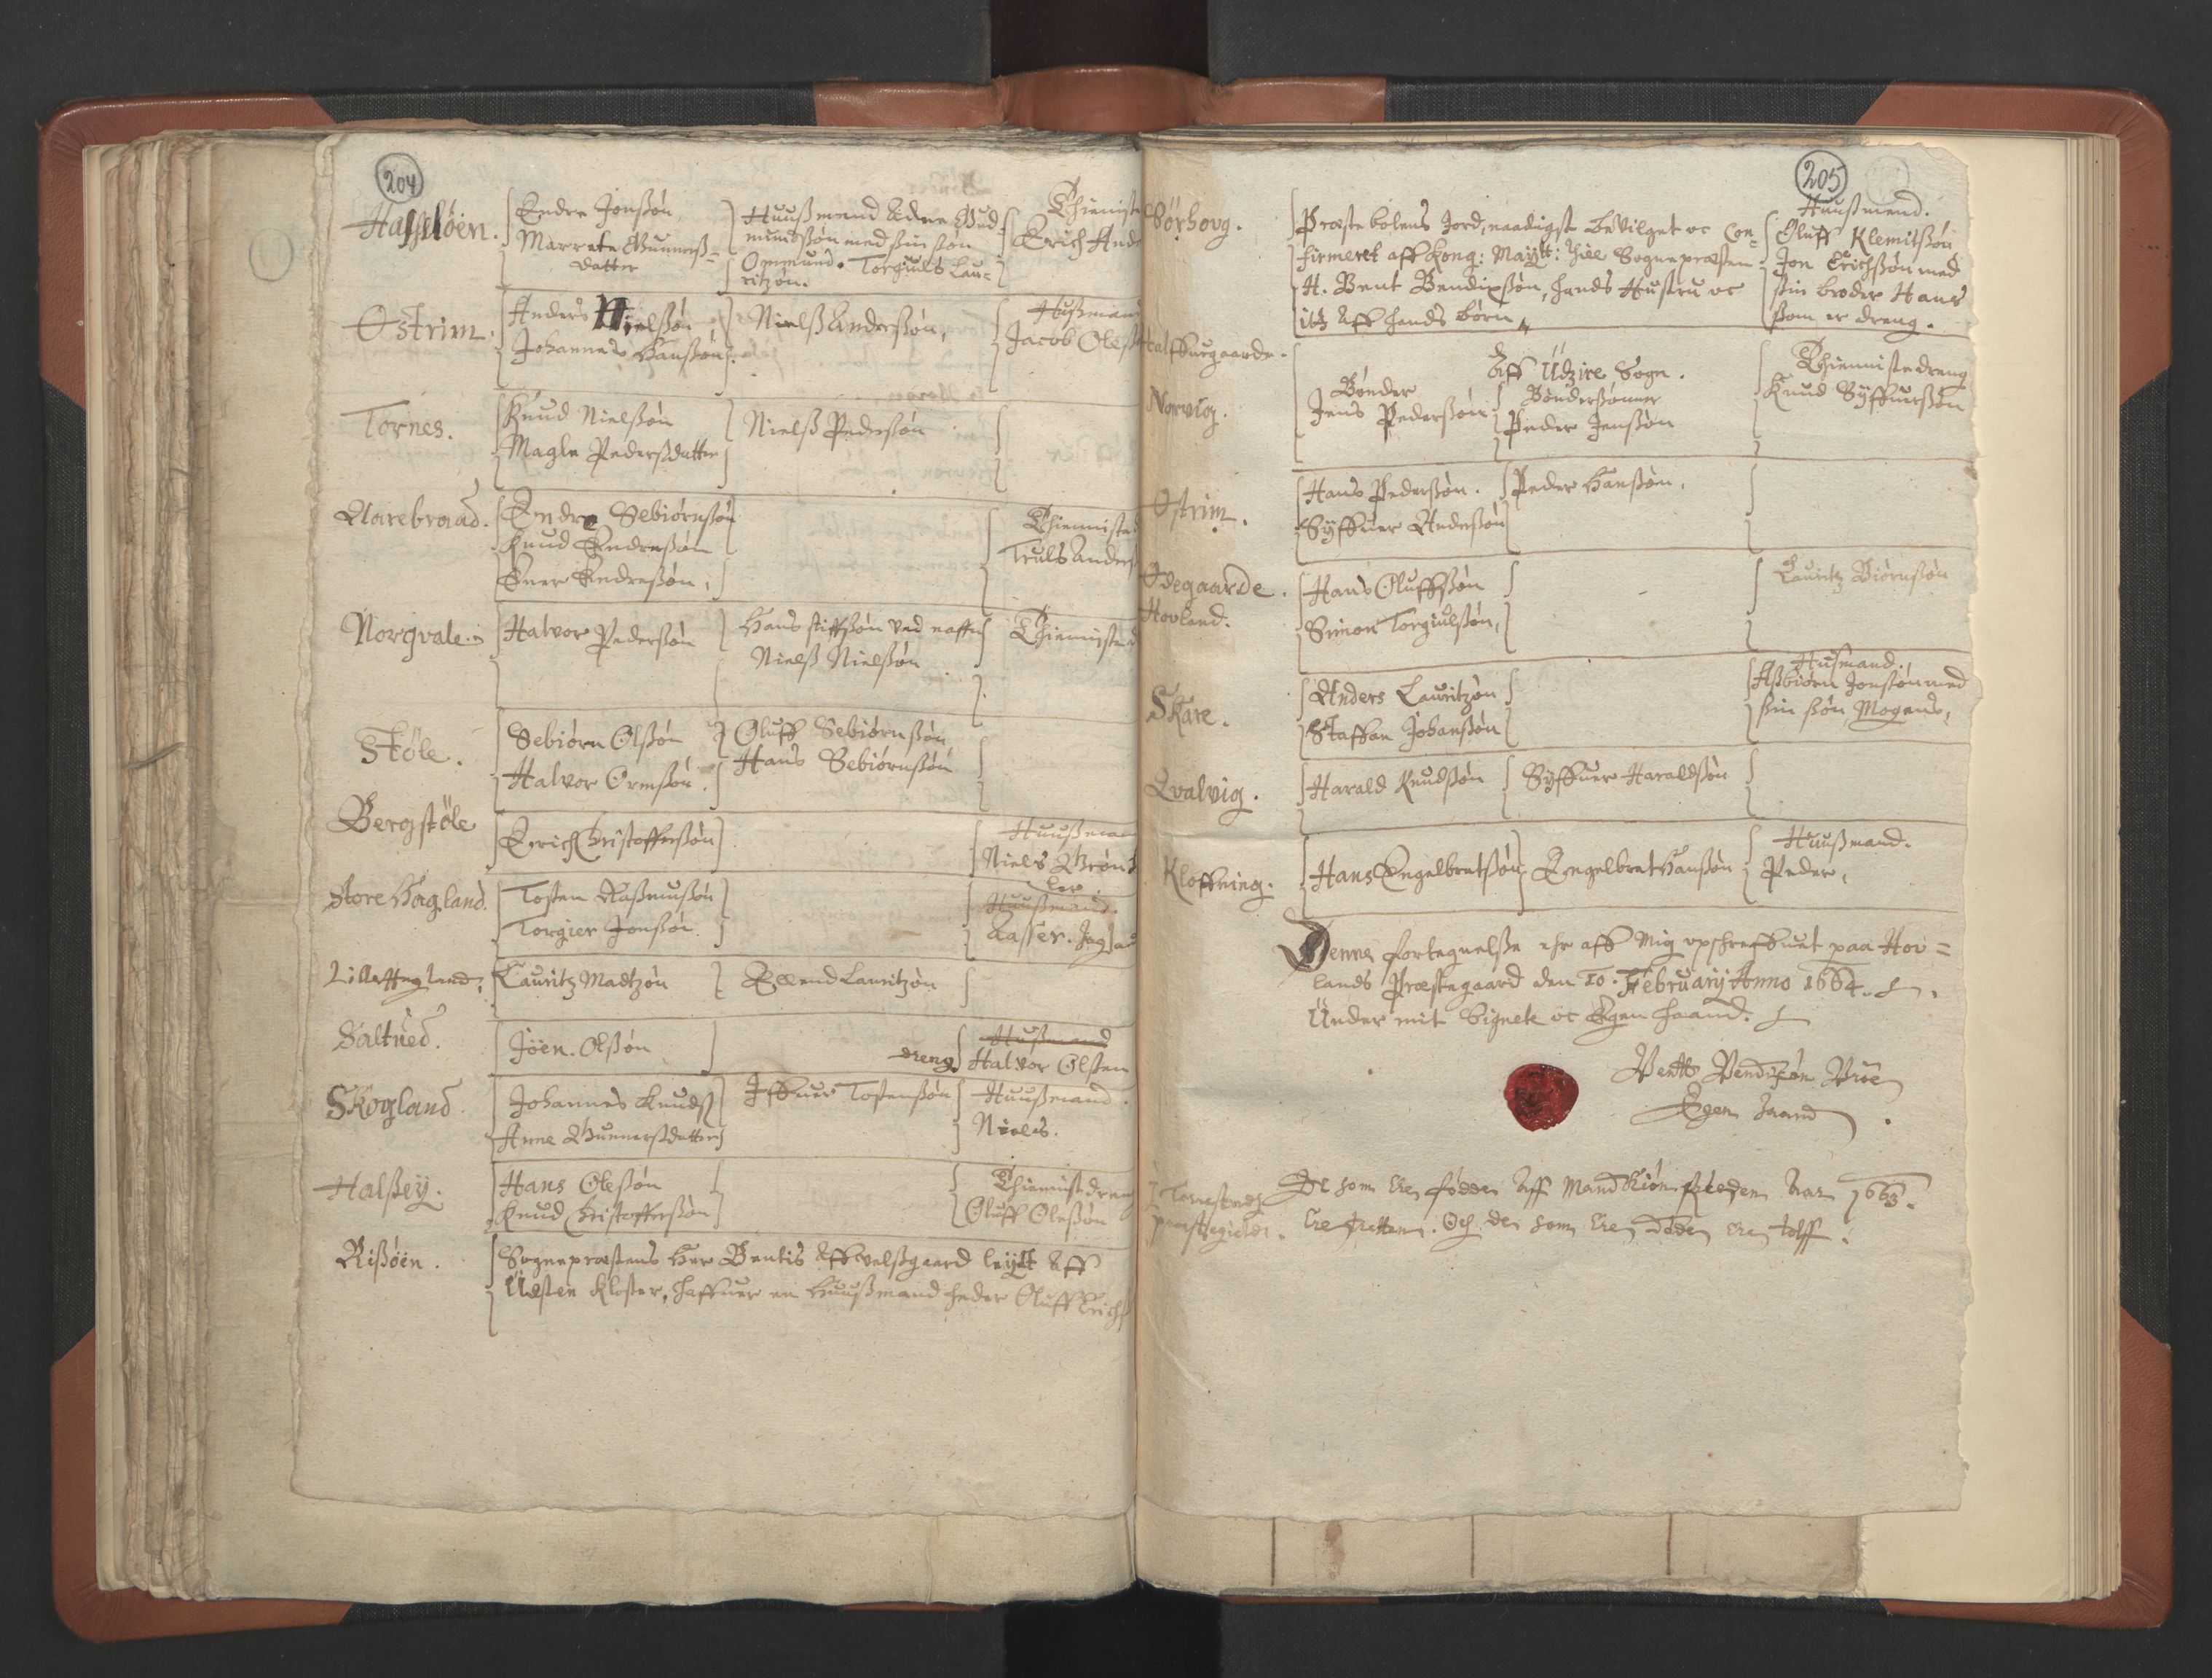 204
Hasseløen.
Endre Jonssøn
Marrete Gunnerß=
datter
Huußmand Adne Gud=
mundssøn med sin søn
Ommund. Torgiuls Lau=
ritzøn.
Thieniste
Erich Ande
Østrim.
Anders Nielssøn
Johannes Hanssøn.
Nielß Anderssøn,
Hußman
Jacob Oless
Tornes.
Knud Nielssøn
Magle Pedersdatter
Nielß Pederssøn
Aarebraad.
Endre Sebiørnssøn
Knud Endressøn
Ener Endressøn,
Thieniste
Truls Anders
Norgvale
Halvor Pederssøn
Hans stiffsøn ved naffn
Nielß Nielssøn
Thieniste
Støle.
Sebiørn Olssøn
Halvor Ormssøn.
Oluff Sebiørnssøn
Hans Sebiørnssøn
Bergstøle
Erich Christofferssøn
Huußman
Niels Grøn
Store Hagland.
Tosten Rasmussøn
Torgier Jonssøn.
Huußmand.
Aasser. Hagland
Lille Hagland.
Lauritz Madtzøn
Ellend Lauritzøn
Saltued.
Jøen. Olssøn
Hußmand
dreng Halvor Olsten
Skogland.
Johannes Knuds
Anne Gunnersdatter
Iffuer Tostenssøn
Huußmand.
Niels.
Halssey.
Hans Olessøn
Knud Christofferssøn
Thienist dreng
Oluff Olessøn
Rissøen.
Sognepræstens Her Bentis Affvelßgaard leyt Aff
Udsten Kloster, haffuer en Huußmand heder Oluff Erichs
205
Børhovg.
Præstebolens Jord, naadigst beVilget oc Con=
firmeret aff Kong: Maytt: till Sognepræsten
H. Bent Bendixssøn, hands Hustru oc
it Aff hands børn
Huußmend.
Oluff Klemitssøn
Jon Erichssøn med
sin broder Hans
som er dreng.
Halffuegaarde.
Aff Udzire Sogn.
Norvig.
Bønder
Jens Pederssøn
Bønderssønner
Peder Jenssøn
Thienniste dreng
Knud Syffuerssøn
Østrim.
Hans Pederssøn.
Syffuer Anderssøn
Peder Hanssøn.
Ødegaarde.
Hovland.
Hans Oluffssøn
Simon Torgiulssøn,
Lauritz Biørnssøn
Skare.
Anders Lauritzøn
Staffan Johanssøn
Husmand.
Aßbiørn Jonssøn med
sin søn Mogens,
Qvalvig.
Harald Knudssøn
Syffuer Haraldssøn
Kloffning.
Hans Engelbretssøn
Engelbret Hanssøn
Huußmand.
Peder,
Denne fortegnelsse ehr aff Mig opschreffuet paa Hov=
lands Præstegaard den 10. February Anno 1664.
Under mit Signete oc Egen haand.
Bentt Bendixøn Brøe
Egen haand
I Torrestad
præstegield.
De som Ere fødde Aff Mandkiøn siden Aar 1663.
Ere tretten. Och de som Ere Døde ere tolff.